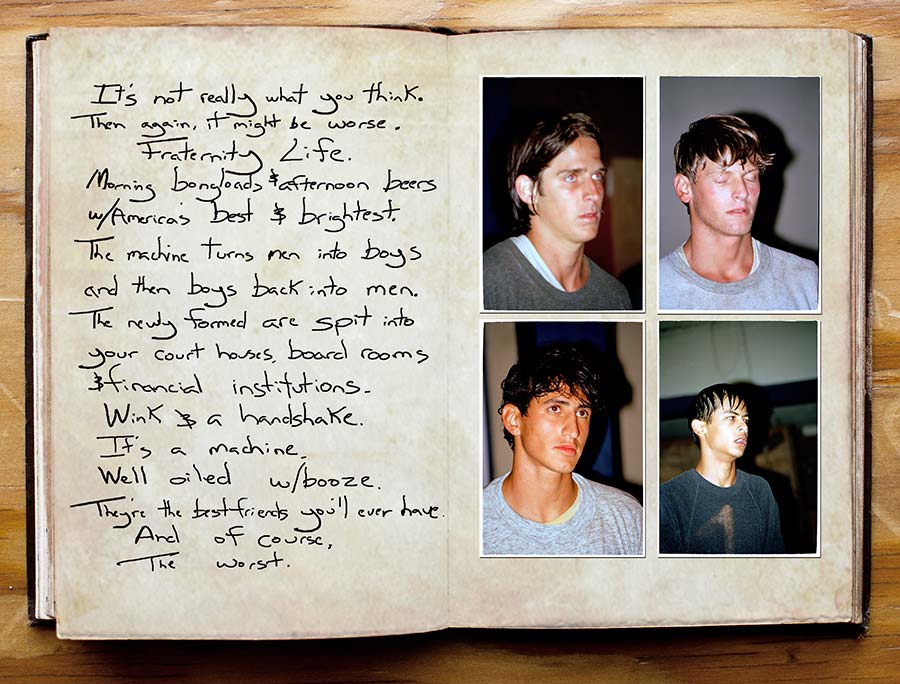 It's not really what you think.
Then again, it might be worse.
Fraternity Life.
Morning bongloads & afternoon beers
w/America's best & brightest.
The machine turns men into boys
and then boys back into men.
The newly formed are spit into
your court houses, board rooms
& financial institutions.
Wink & a handshake.
It's a machine.
Well oiled w/booze.
They're the best friends you'll ever have.
And of course,
The worst.